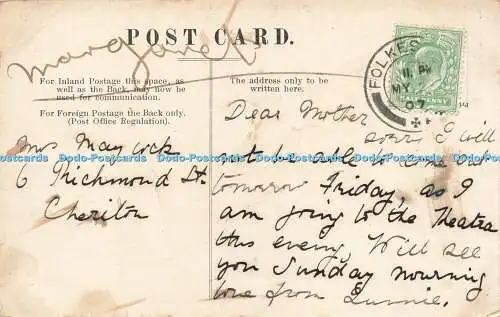 POST CARD.
Margaret
For Inland Postage this space, as
well as the Back, may now be
used for communication.
For Foreign Postage the Back only.
(Post Office Regulation).
The address only to be
written here.
FOLKES
MY
07
Mrs May cock
6 Richmond St.
Cheriton
Dear Mother
sorry I will
not be able to come over
tomorrow Friday, as I
am going to the Theatre
this evening, Will see
you Sunday mourning
love from
Dodo-Postcards Dodo-Postcards Dodo-Postcards Dodo-Postcards Dodo-Postcards